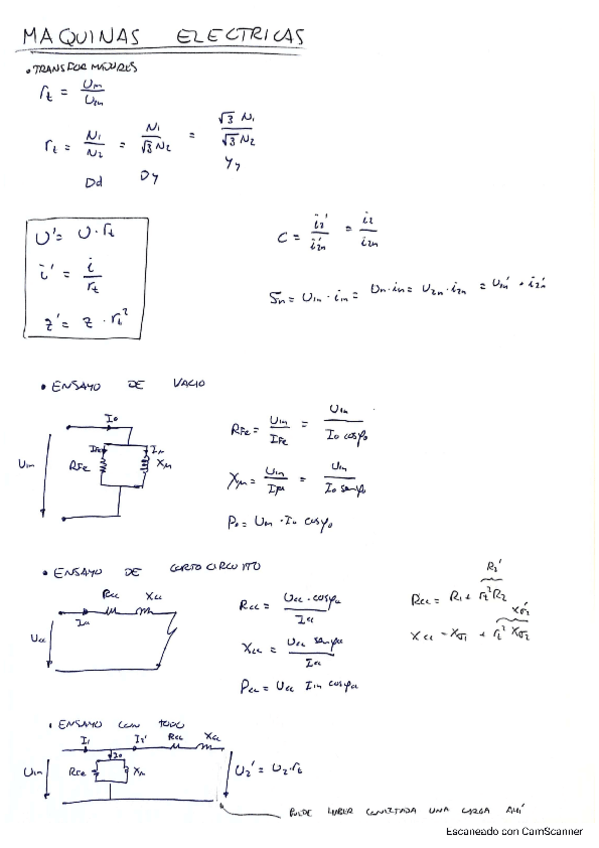 MAQUINAS ELECTRICAS
• TRANSFORMADORES
rt = U1n / U2n
rt = N1 / N2 = N1 / √3 N2 = √3 N1 / √3 N2
Dd Dy Yy
U' = U · rt
i' = i / rt
z' = z · rt²
C = i2' / i2n' = i2 / i2n
Sn = U1n · i1n = Un · in = U2n · i2n = U2n' · i2n'
• ENSAYO DE VACIO
I0
IFe Iμ
U1n RFe Xμ
RFe = U1n / IFe = U1n / I0 cosφ0
Xμ = U1n / Iμ = U1n / I0 senφ0
P0 = U1n · I0 cosφ0
• ENSAYO DE CORTOCIRCUITO
Rcc Xcc
Ucc
Rcc = Ucc · cosφcc / Icc
Xcc = Ucc senφcc / Icc
Pcc = Ucc I1n cosφcc
R2'
Rcc = R1 + rt² R2
Xσ2'
Xcc = Xσ1 + rt² Xσ2
• ENSAYO CON TODO
I1 I2' Rcc Xcc
I0
U1n RFe Xμ
U2' = U2 · rt
PUEDE HABER CONECTADA UNA CARGA AQUÍ
Escaneado con CamScanner